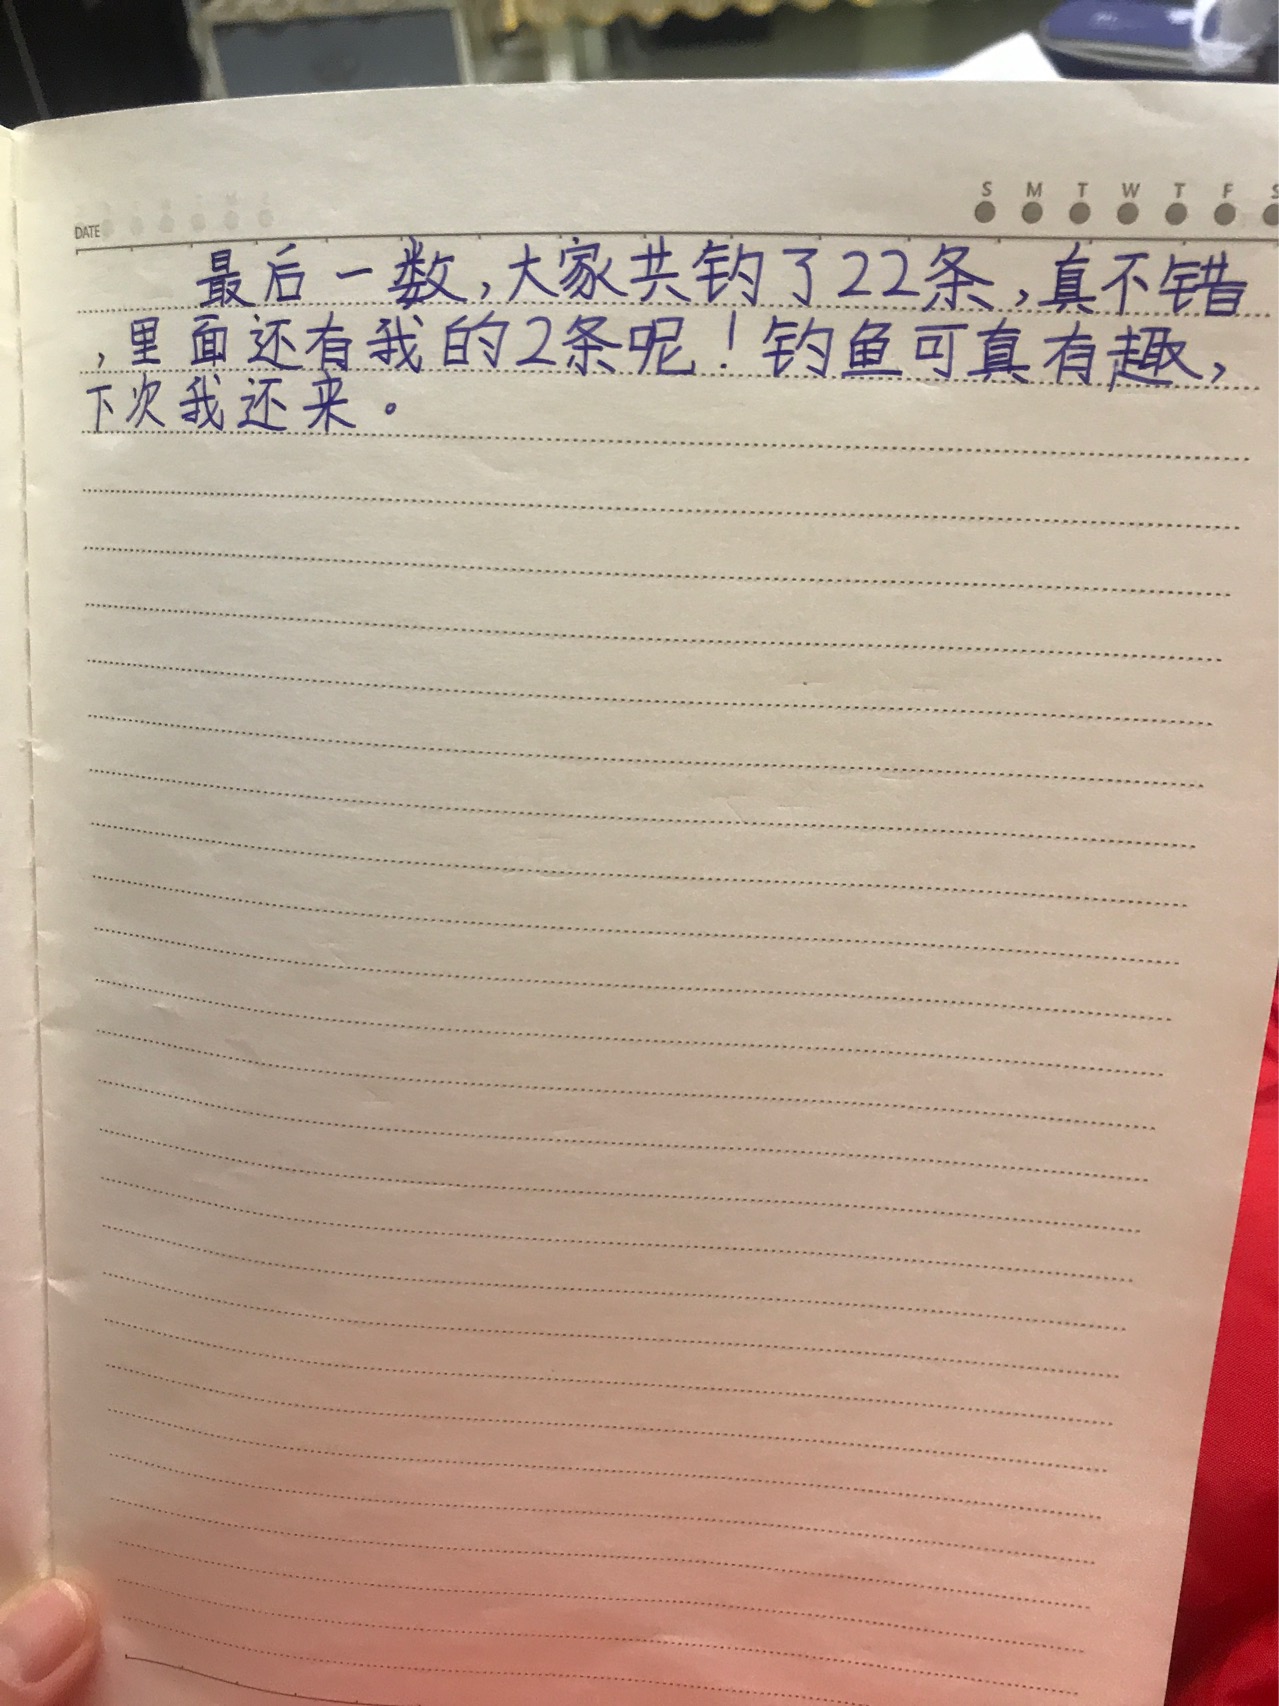 S M T W T F S
DATE
最后一数,大家共钓了22条,真不错
,里面还有我的2条呢!钓鱼可真有趣,
下次我还来。